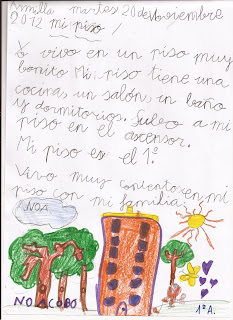 Armilla martes 20 de noviembre
2012 mi piso
Yo vivo en un piso muy
bonito Mi piso tiene una
cocina, un salón, un baño
y dormitorios. Subo a mi
piso en el ascensor.
Mi piso es el 1º
Vivo muy contento en mi
piso con mi familia
NOA
NOA COBO
1º A.